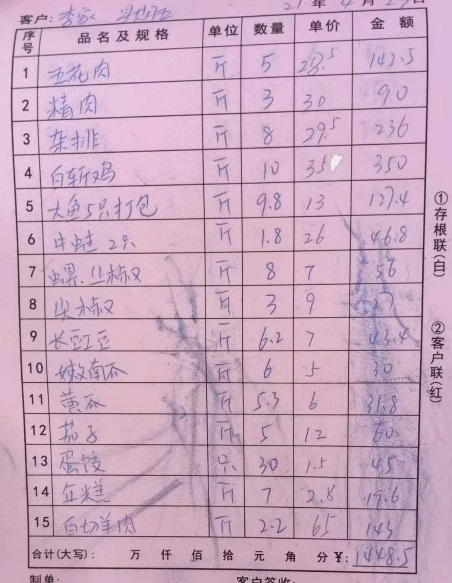 客户: 李家
21年4月25日
序号 品名及规格 单位 数量 单价 金额
1 五花肉 斤 5 28.5 142.5
2 精肉 斤 3 30 90
3 杂排 斤 8 29.5 236
4 白斩鸡 斤 10 35 350
5 大鱼5只打包 斤 9.8 13 127.4
6 牛蛙 2只 斤 1.8 26 46.8
7 螺丝椒 斤 8 7 56
8 尖椒 斤 3 9 27
9 长豇豆 斤 6.2 7 43.4
10 嫩南瓜 斤 6 5 30
11 黄瓜 斤 5.3 6 31.8
12 茄子 斤 5 12 60
13 蛋饺 只 30 1.5 45
14 年糕 斤 7 2.8 19.6
15 白切羊肉 斤 2.2 65 143
合计(大写): 万 仟 佰 拾 元 角 分 ¥: 1448.5
制单: 客户签收:
①存根联(白)
②客户联(红)